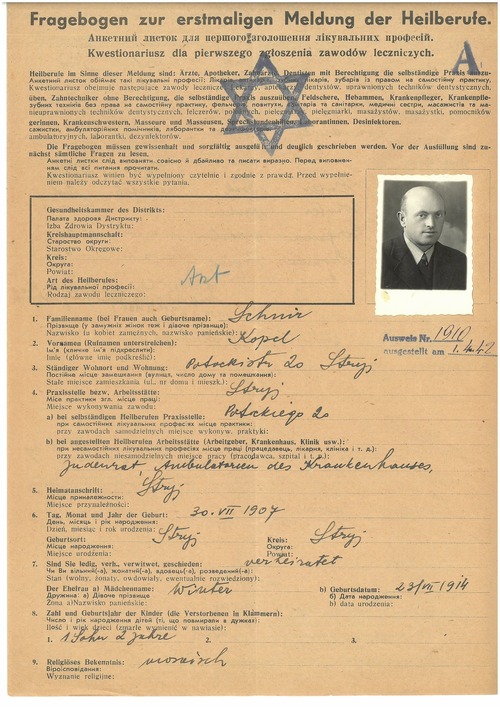 Fragebogen zur erstmaligen Meldung der Heilberufe.
Анкетний листок для першого зголошення лікувальних професій.
Kwestionariusz dla pierwszego zgłoszenia zawodów leczniczych.
A
Heilberufe im Sinne dieser Meldung sind: Ärzte, Apotheker, Zahnärzte, Dentisten mit Berechtigung die selbständige Praxis auszu-
Анкетний листок обіймає такі лікувальні професії:
Kwestionariusz obejmuje następujące zawody lecznicze:
üben, Zahntechniker ohne Berechtigung, die selbständige Praxis auszuüben, Feldschere, Hebammen, Krankenpfleger, Krankenpfle-
gerinnen, Krankenschwestern, Masseure und Masseusen, Desinfektoren.
ambulatoryjnych, laboranci, dezynfektorów.
Die Fragebogen müssen gewissenhaft und sorgfältig ausgefüllt und deutlich geschrieben werden. Vor der Ausfüllung sind zu-
nächst sämtliche Fragen zu lesen.
Анкетні листки слід виповняти совісно й дбайливо та писати виразно. Перед виповнен-
ням слід всі питання прочитати.
Kwestionariusz winien być wypełniony czytelnie i zgodnie z prawdą. Przed wypełnie-
niem należy odczytać wszystkie pytania.
Gesundheitskammer des Distrikts:
Палата здоровя Дистрикту:
Izba Zdrowia Dystryktu:
Kreishauptmannschaft:
Староство округи:
Starostwo Okręgowe:
Kreis:
Округа:
Powiat:
Art des Heilberufes: Arzt
Рід лікувальної професії:
Rodzaj zawodu leczniczego:
1. Familienname (bei Frauen auch Geburtsname): Schnir
Прізвище (у замужніх жінок теж і дівоче прізвище):
Nazwisko (u kobiet zamężnych, nazwisko panieńskie):
Ausweis Nr. 1910
ausgestellt am 1.4.42
2. Vornamen (Rufnamen unterstreichen): Kopel
Ім'я (кличне ім'я підкреслити):
Imię (główne imię podkreślić):
3. Ständiger Wohnort und Wohnung: 20 Stryj
Постійне місце замешкання (вулиця, число дому та помешкання):
Stałe miejsce zamieszkania (ul., nr domu i mieszk.):
4. Praxisstelle bezw. Arbeitsstätte: Stryj
Місце практики згл. місце праці:
Miejsce wykonywania zawodu:
a) bei selbständigen Heilberufen Praxisstelle: Potockiego 20
при самостійних лікувальних професіях місце практики:
przy zawodach samodzielnych miejsce wykonyw. praktyki:
b) bei angestellten Heilberufen Arbeitsstätte (Arbeitgeber, Krankenhaus, Klinik usw.):
при несамостійних лікувальних професіях місце праці (працедавець, лікарня, клініка і т. д.):
przy zawodach niesamodzielnych miejsce pracy (pracodawca, szpital i t. d.):
Judenrat, Ambulatorium des Krankenhauses,
5. Heimatanschrift: Stryj
Місце приналежности:
Miejsce przynależności:
6. Tag, Monat und Jahr der Geburt: 30. VII 1907
День, місяць і рік народження:
Dzień, miesiąc i rok urodzenia:
Geburtsort: Stryj Kreis: Stryj
Місце народження: Округа:
Miejsce urodzenia: Powiat:
7. Sind Sie ledig, verh., verwitwet, geschieden: verheiratet
Чи Ви вільний(-а), жонатий(-а), вдовець(-а), розведений(-а):
Stan (wolny, żonaty, owdowiały, ewentualnie rozwiedziony):
Der Ehefrau a) Mädchenname: Winter b) Geburtsdatum: 23/VII 1914
Дружина: а) Дівоче прізвище б) Дата народження:
Żona a) Nazwisko panieńskie: b) data urodzenia:
8. Zahl und Geburtsjahr der Kinder (die Verstorbenen in Klammern):
Число і рік народження дітей (ті, що повмирали в дужках):
Ilość i wiek dzieci (zmarłe wymienić w nawiasie):
1. 1 Sohn 2 Jahre 2. 3.
9. Religiöses Bekenntnis: mosaisch
Віроісповідання:
Wyznanie religijne: